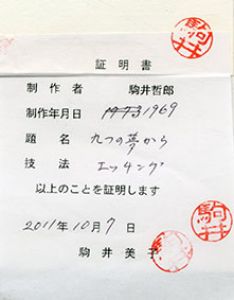 駒井
証明書
制作者 駒井哲郎
制作年月日 1973 1969
題名 九つの夢から
技法 エッチング
以上のことを証明します
2011年10月7日
駒井
駒井美子